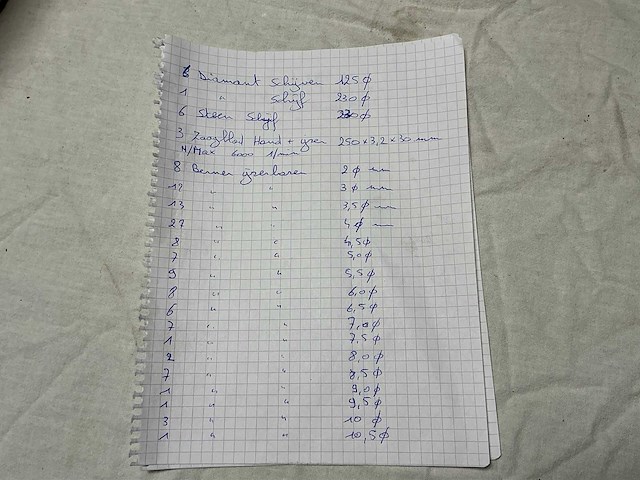 6 Diamant Schijven 125 ø
1 " Schijf 230 ø
6 Steen Schijf 230 ø
3 Zaagblad Hand + ijzer 250 x 3,2 x 30 mm
N/Max 6000 1/min
8 Berner ijzerboren 2 ø mm
12 " " 3 ø mm
13 " " 3,5 ø mm
27 " " 4 ø mm
8 " " 4,5 ø
7 " " 5,0 ø
9 " " 5,5 ø
8 " " 6,0 ø
6 " " 6,5 ø
7 " " 7,0 ø
1 " " 7,5 ø
2 " " 8,0 ø
7 " " 8,5 ø
1 " " 9,0 ø
1 " " 9,5 ø
3 " " 10 ø
1 " " 10,5 ø